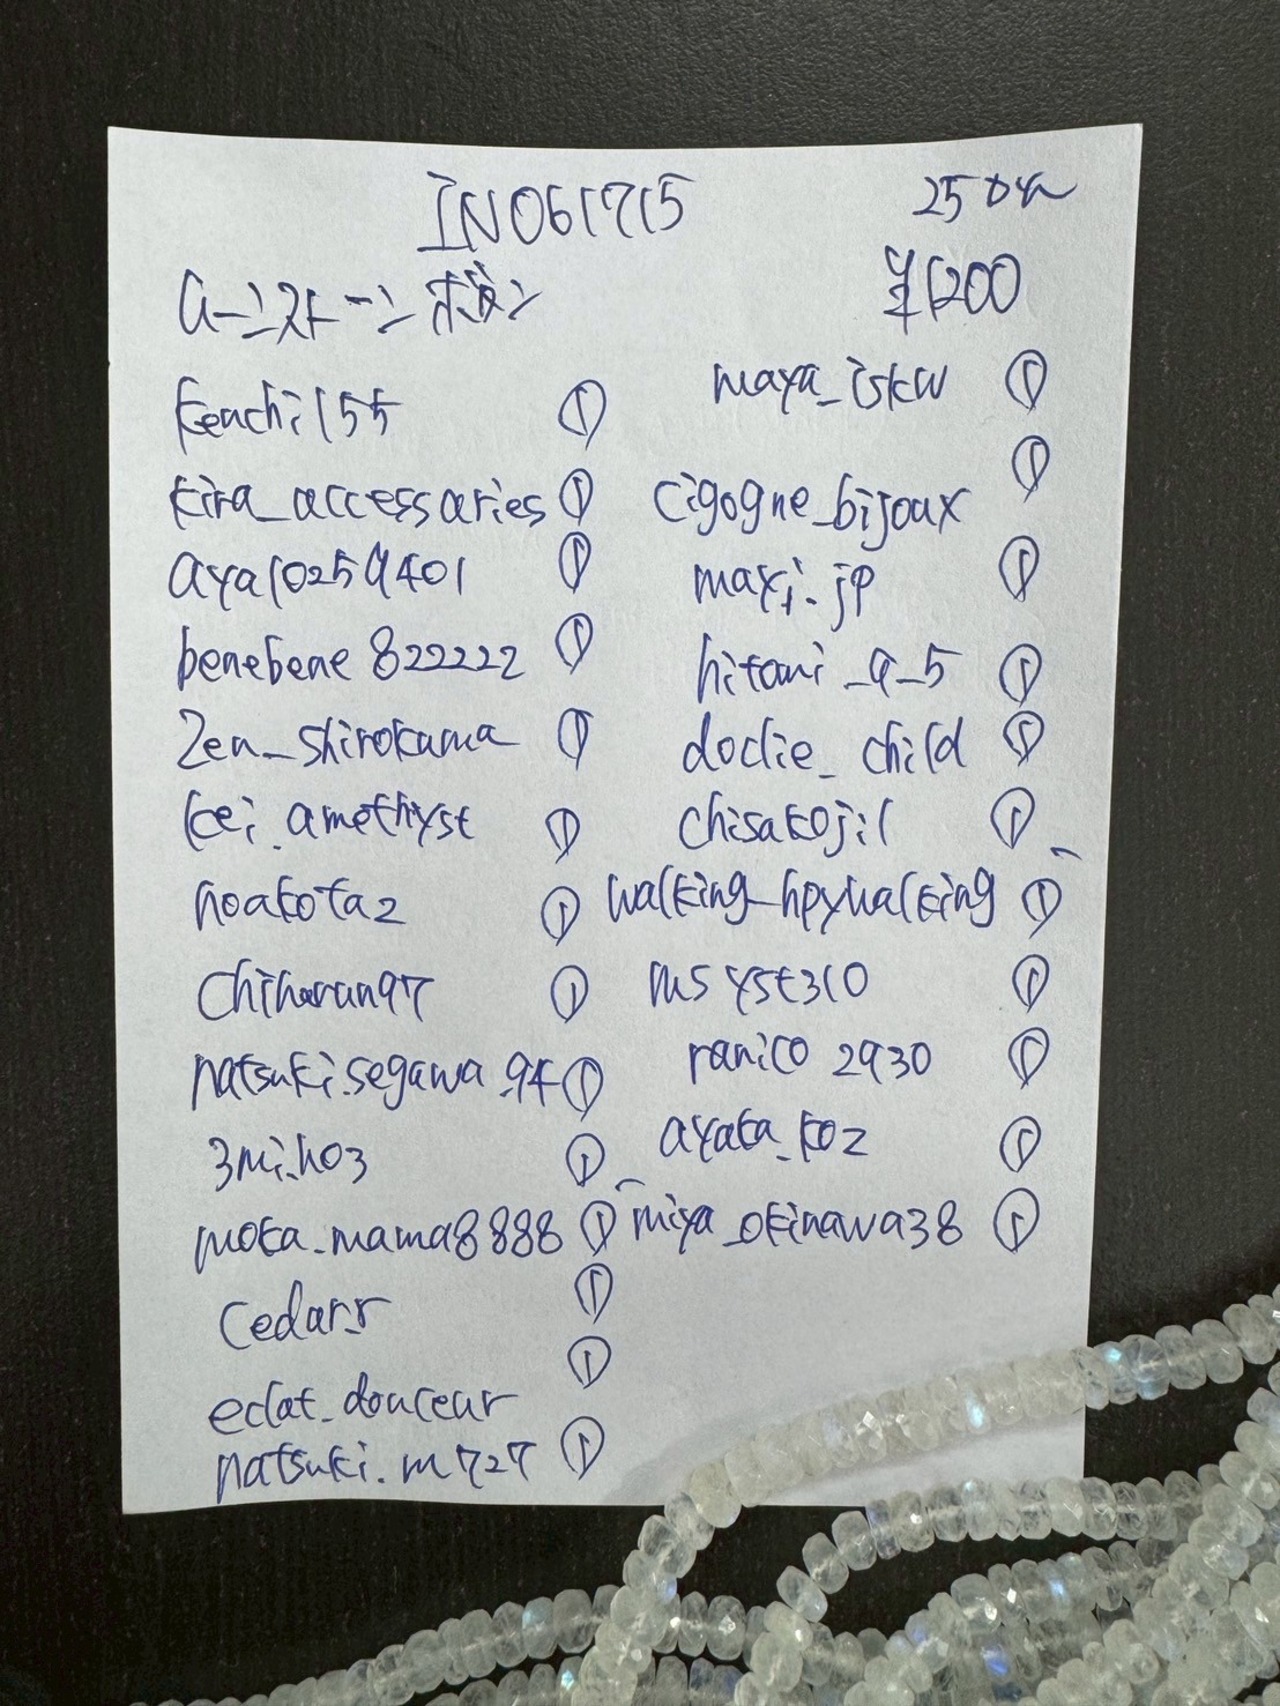 IN061715
25cm
ムーンストーン ボタン
¥1200
kenchi155 ①
kira_accessaries ①
aya10259401 ①
benebene822222 ①
zen_shirokuma ①
kei.amethyst ①
noakota2 ①
chiharun97 ①
natsuki.segawa.94 ①
3mi.ho3 ①
moka.mama8888 ①
cedar.r ①
eclat.douceur ①
natsuki.m727 ①
maya_iskw ①
cigogne_bijoux ①
maxi.jp ①
hitomi_a_5 ①
doclie_child ①
chisakoji1 ①
walking_hpywalking ①
msyst310 ①
ranico2930 ①
ayaka_ko2 ①
miya_okinawa38 ①